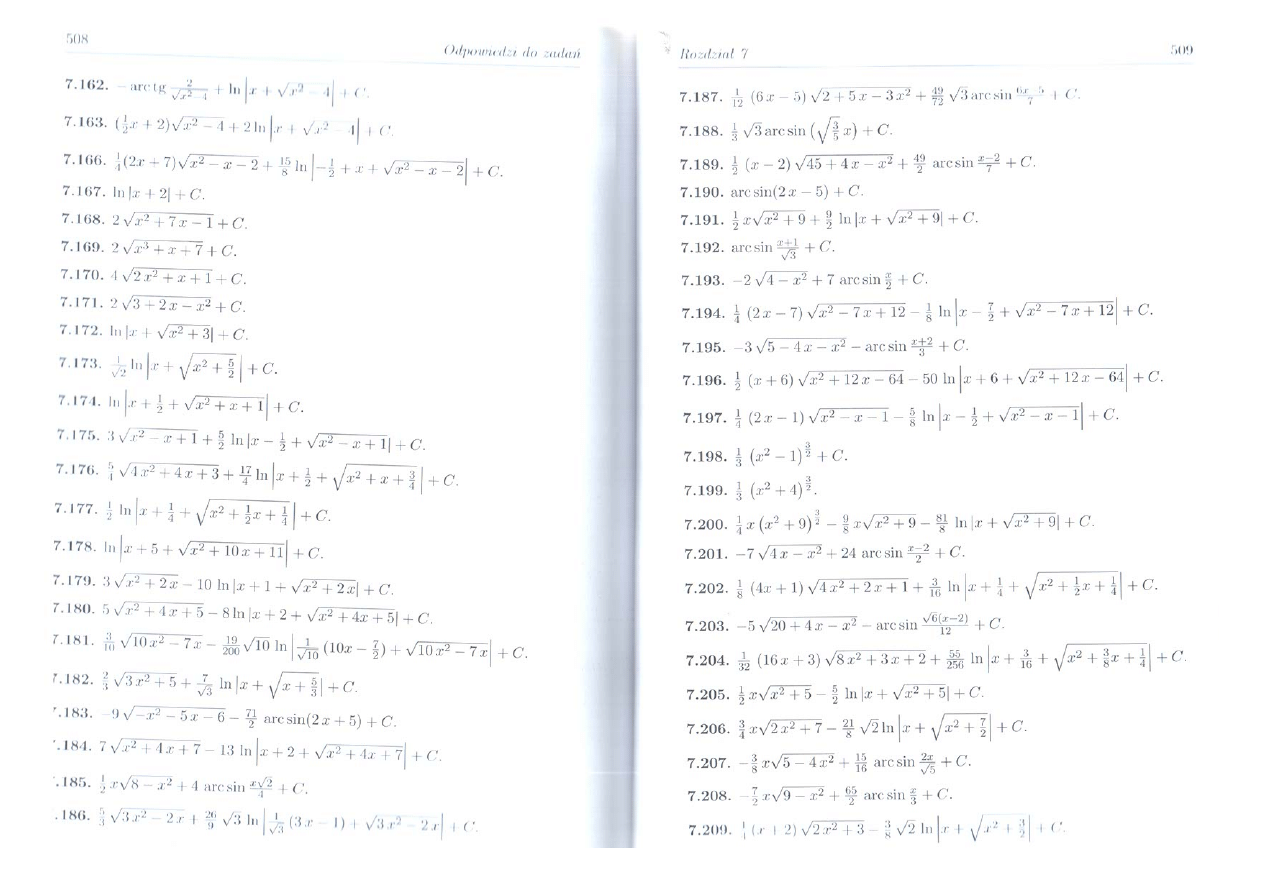 508
Odpowiedzi do zadań
7.162. −arctg 2/√(x²−4) + ln|x + √(x² − 4)| + C.
7.163. (½x + 2)√(x² − 4) + 2 ln|x + √(x² − 4)| + C.
7.166. ¼(2x + 7)√(x² − x − 2) + 15/8 ln|−½ + x + √(x² − x − 2)| + C.
7.167. ln|x + 2| + C.
7.168. 2√(x² + 7x − 1) + C.
7.169. 2√(x³ + x + 7) + C.
7.170. 4√(2x² + x + 1) + C.
7.171. 2√(3 + 2x − x²) + C.
7.172. ln|x + √(x² + 3)| + C.
7.173. 1/√2 ln|x + √(x² + 5/2)| + C.
7.174. ln|x + ½ + √(x² + x + 1)| + C.
7.175. 3√(x² − x + 1) + 5/2 ln|x − ½ + √(x² − x + 1)| + C.
7.176. 5/4 √(4x² + 4x + 3) + 17/4 ln|x + ½ + √(x² + x + ¾)| + C.
7.177. ½ ln|x + ¼ + √(x² + ½x + ¼)| + C.
7.178. ln|x + 5 + √(x² + 10x + 11)| + C.
7.179. 3√(x² + 2x) − 10 ln|x + 1 + √(x² + 2x)| + C.
7.180. 5√(x² + 4x + 5) − 8 ln|x + 2 + √(x² + 4x + 5)| + C.
7.181. 3/10 √(10x² − 7x) − 19/200 √10 ln|1/√10 (10x − 7/2) + √(10x² − 7x)| + C.
7.182. 2/3 √(3x² + 5) + 7/√3 ln|x + √(x + 5/3)| + C.
.183. −9√(−x² − 5x − 6) − 71/2 arcsin(2x + 5) + C.
.184. 7√(x² + 4x + 7) − 13 ln|x + 2 + √(x² + 4x + 7)| + C.
.185. ½x√(8 − x²) + 4 arcsin x√2/4 + C.
.186. 5/3 √(3x² − 2x) + 26/9 √3 ln|1/√3 (3x − 1) + √(3x² − 2x)| + C.
Rozdział 7
509
7.187. 1/12 (6x − 5)√(2 + 5x − 3x²) + 49/72 √3 arcsin (6x−5)/7 + C.
7.188. 1/3 √3 arcsin (√(3/5) x) + C.
7.189. ½ (x − 2)√(45 + 4x − x²) + 49/2 arcsin (x−2)/7 + C.
7.190. arcsin(2x − 5) + C.
7.191. ½ x√(x² + 9) + 9/2 ln|x + √(x² + 9)| + C.
7.192. arcsin (x+1)/√3 + C.
7.193. −2√(4 − x²) + 7 arcsin x/2 + C.
7.194. ¼ (2x − 7)√(x² − 7x + 12) − 1/8 ln|x − 7/2 + √(x² − 7x + 12)| + C.
7.195. −3√(5 − 4x − x²) − arcsin (x+2)/3 + C.
7.196. ½ (x + 6)√(x² + 12x − 64) − 50 ln|x + 6 + √(x² + 12x − 64)| + C.
7.197. ¼ (2x − 1)√(x² − x − 1) − 5/8 ln|x − ½ + √(x² − x − 1)| + C.
7.198. 1/3 (x² − 1)^(3/2) + C.
7.199. 1/3 (x² + 4)^(3/2).
7.200. ¼ x (x² + 9)^(3/2) − 9/8 x√(x² + 9) − 81/8 ln|x + √(x² + 9)| + C.
7.201. −7√(4x − x²) + 24 arcsin (x−2)/2 + C.
7.202. 1/8 (4x + 1)√(4x² + 2x + 1) + 3/16 ln|x + ¼ + √(x² + ½x + ¼)| + C.
7.203. −5√(20 + 4x − x²) − arcsin √6(x−2)/12 + C.
7.204. 1/32 (16x + 3)√(8x² + 3x + 2) + 55/256 ln|x + 3/16 + √(x² + 3/8 x + ¼)| + C.
7.205. ½ x√(x² + 5) − 5/2 ln|x + √(x² + 5)| + C.
7.206. ¾ x√(2x² + 7) − 21/8 √2 ln|x + √(x² + 7/2)| + C.
7.207. −3/8 x√(5 − 4x²) + 15/16 arcsin 2x/√5 + C.
7.208. −7/2 x√(9 − x²) + 65/2 arcsin x/3 + C.
7.209. ¼ (x + 2)√(2x² + 3) − 3/8 √2 ln|x + √(x² + 3/2)| + C.